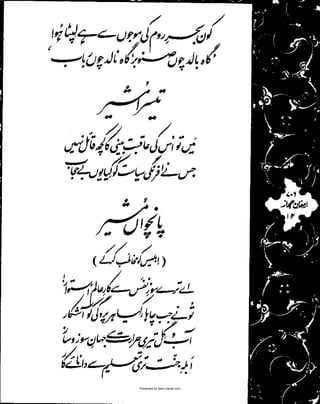 کون بحرِ روم کی موجوں سے ہے لپٹا ہوا
’گاہ بالد چوں صنوبر، گاہ نالد چوں رباب‘
تیسرا مُشیر
میں تو اس کی عاقبت بینی کا کچھ قائل نہیں
جس نے افرنگی سیاست کو کِیا یوں بے حجاب
پانچواں مُشیر
(ابلیس کو مخاطب کر کے)
اے ترے سوزِ نفس سے کارِ عالم استوار!
تُو نے جب چاہا، کِیا ہر پردگی کو آشکار
آب و گِل تیری حرارت سے جہانِ سوز و ساز
ابلہِ جنّت تری تعلیم سے دانائے کار
۷۰۶
ارمغانِ حجاز
۱۴
Presented by www.ziaraat.com